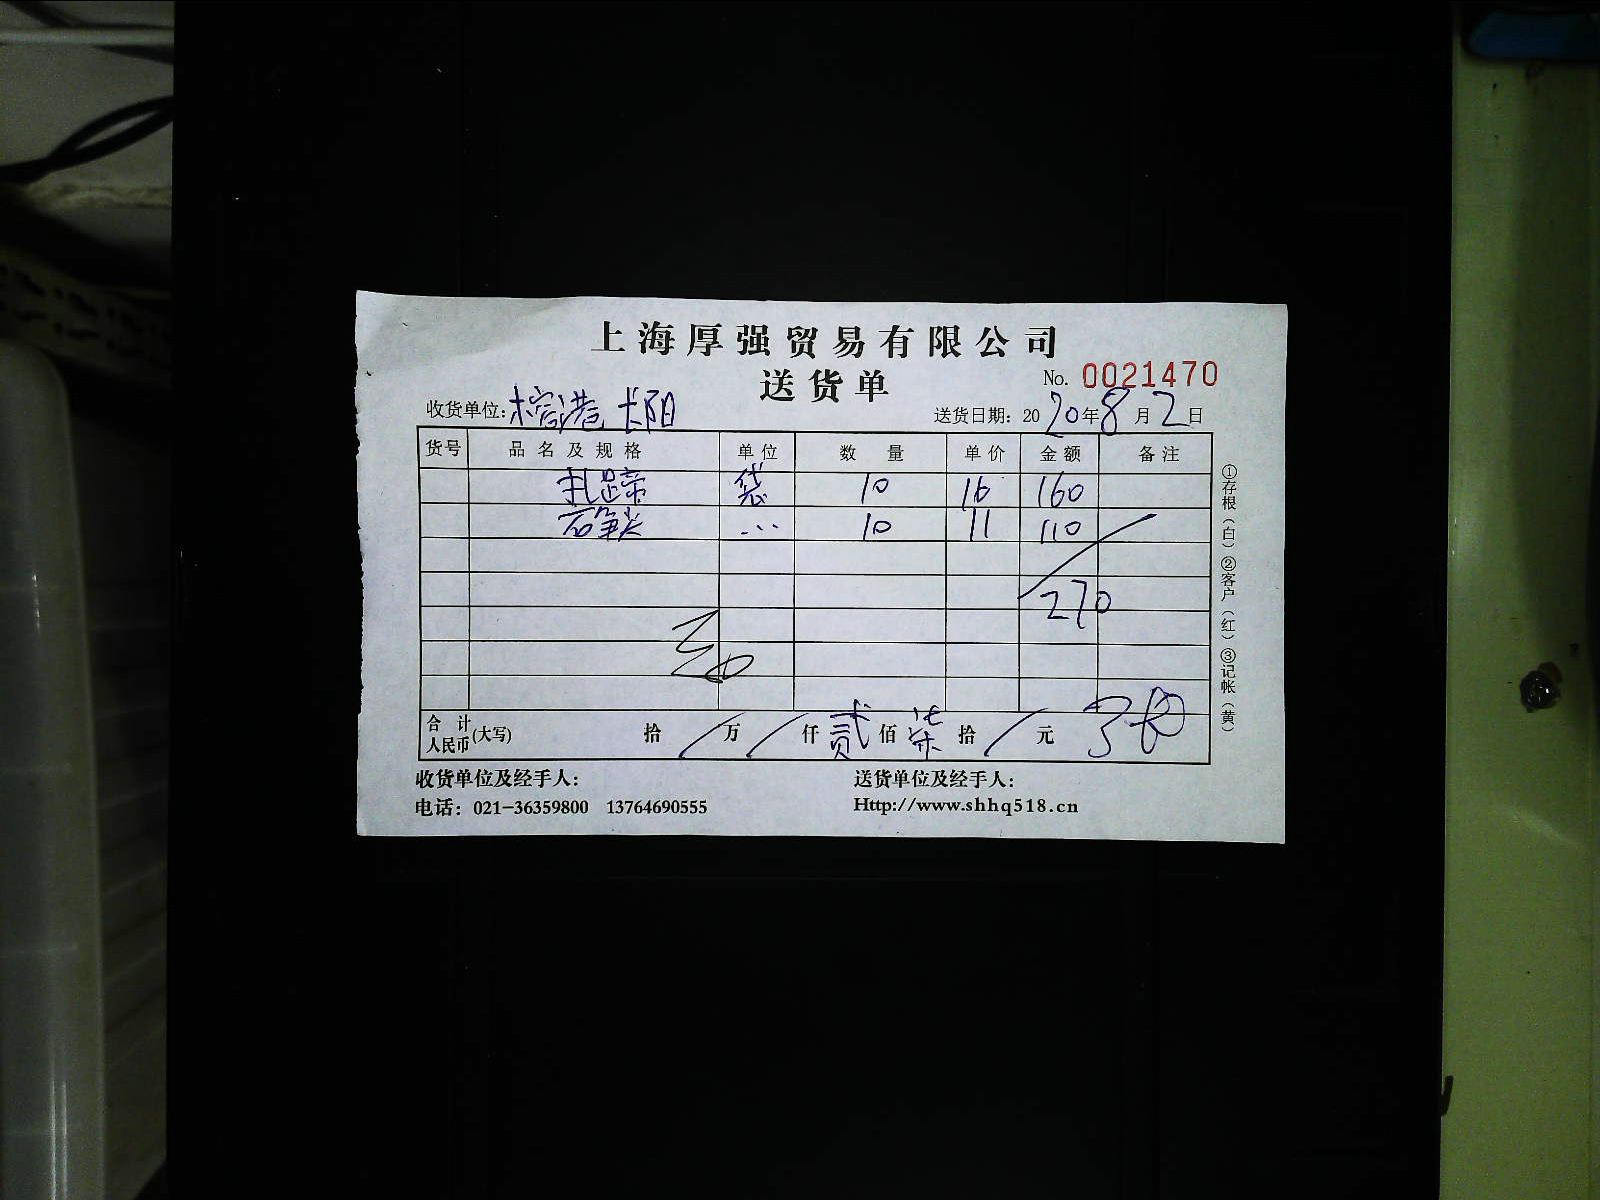 上海厚强贸易有限公司
送货单
No. 0021470
收货单位: 榕港 长阳
送货日期: 2020年8月2日
货号 品名及规格 单位 数量 单价 金额 备注
扎蹄 袋 10 16 160
石笋尖 … 10 11 110
270
合计人民币(大写) 拾 / 万 / 仟 贰 佰 柒 拾 / 元
收货单位及经手人:
送货单位及经手人:
电话: 021-36359800 13764690555
Http://www.shhq518.cn
①存根(白)②客户(红)③记帐(黄)